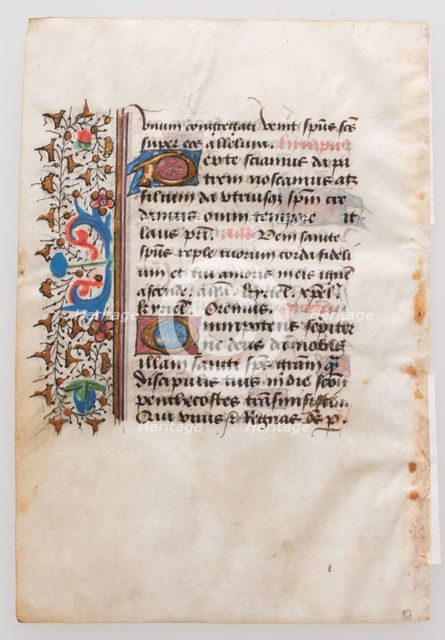 vnum congregati venit spūs scs
super eos alleluya. himpnꝰ
Depte sciamus da pa
trem noscamus atz
filium da vtriusqȝ spūm cre
damus omni tempore it
laus pri. Veni sancte
spūs reple tuorum corda fideli
um et tui amoris in eis ignem
ascende. Kyriel. xpel.
kyriel. Oremus.
Omnipotens sempiter
ne deus da nobis
illam sancti spūs gram
discipulis tuis in die sco
penthecostes transmisisti.
Qui viuis et Regnas ds p.
Heritage
Heritage
Heritage
Heritage
Heritage
Heritage